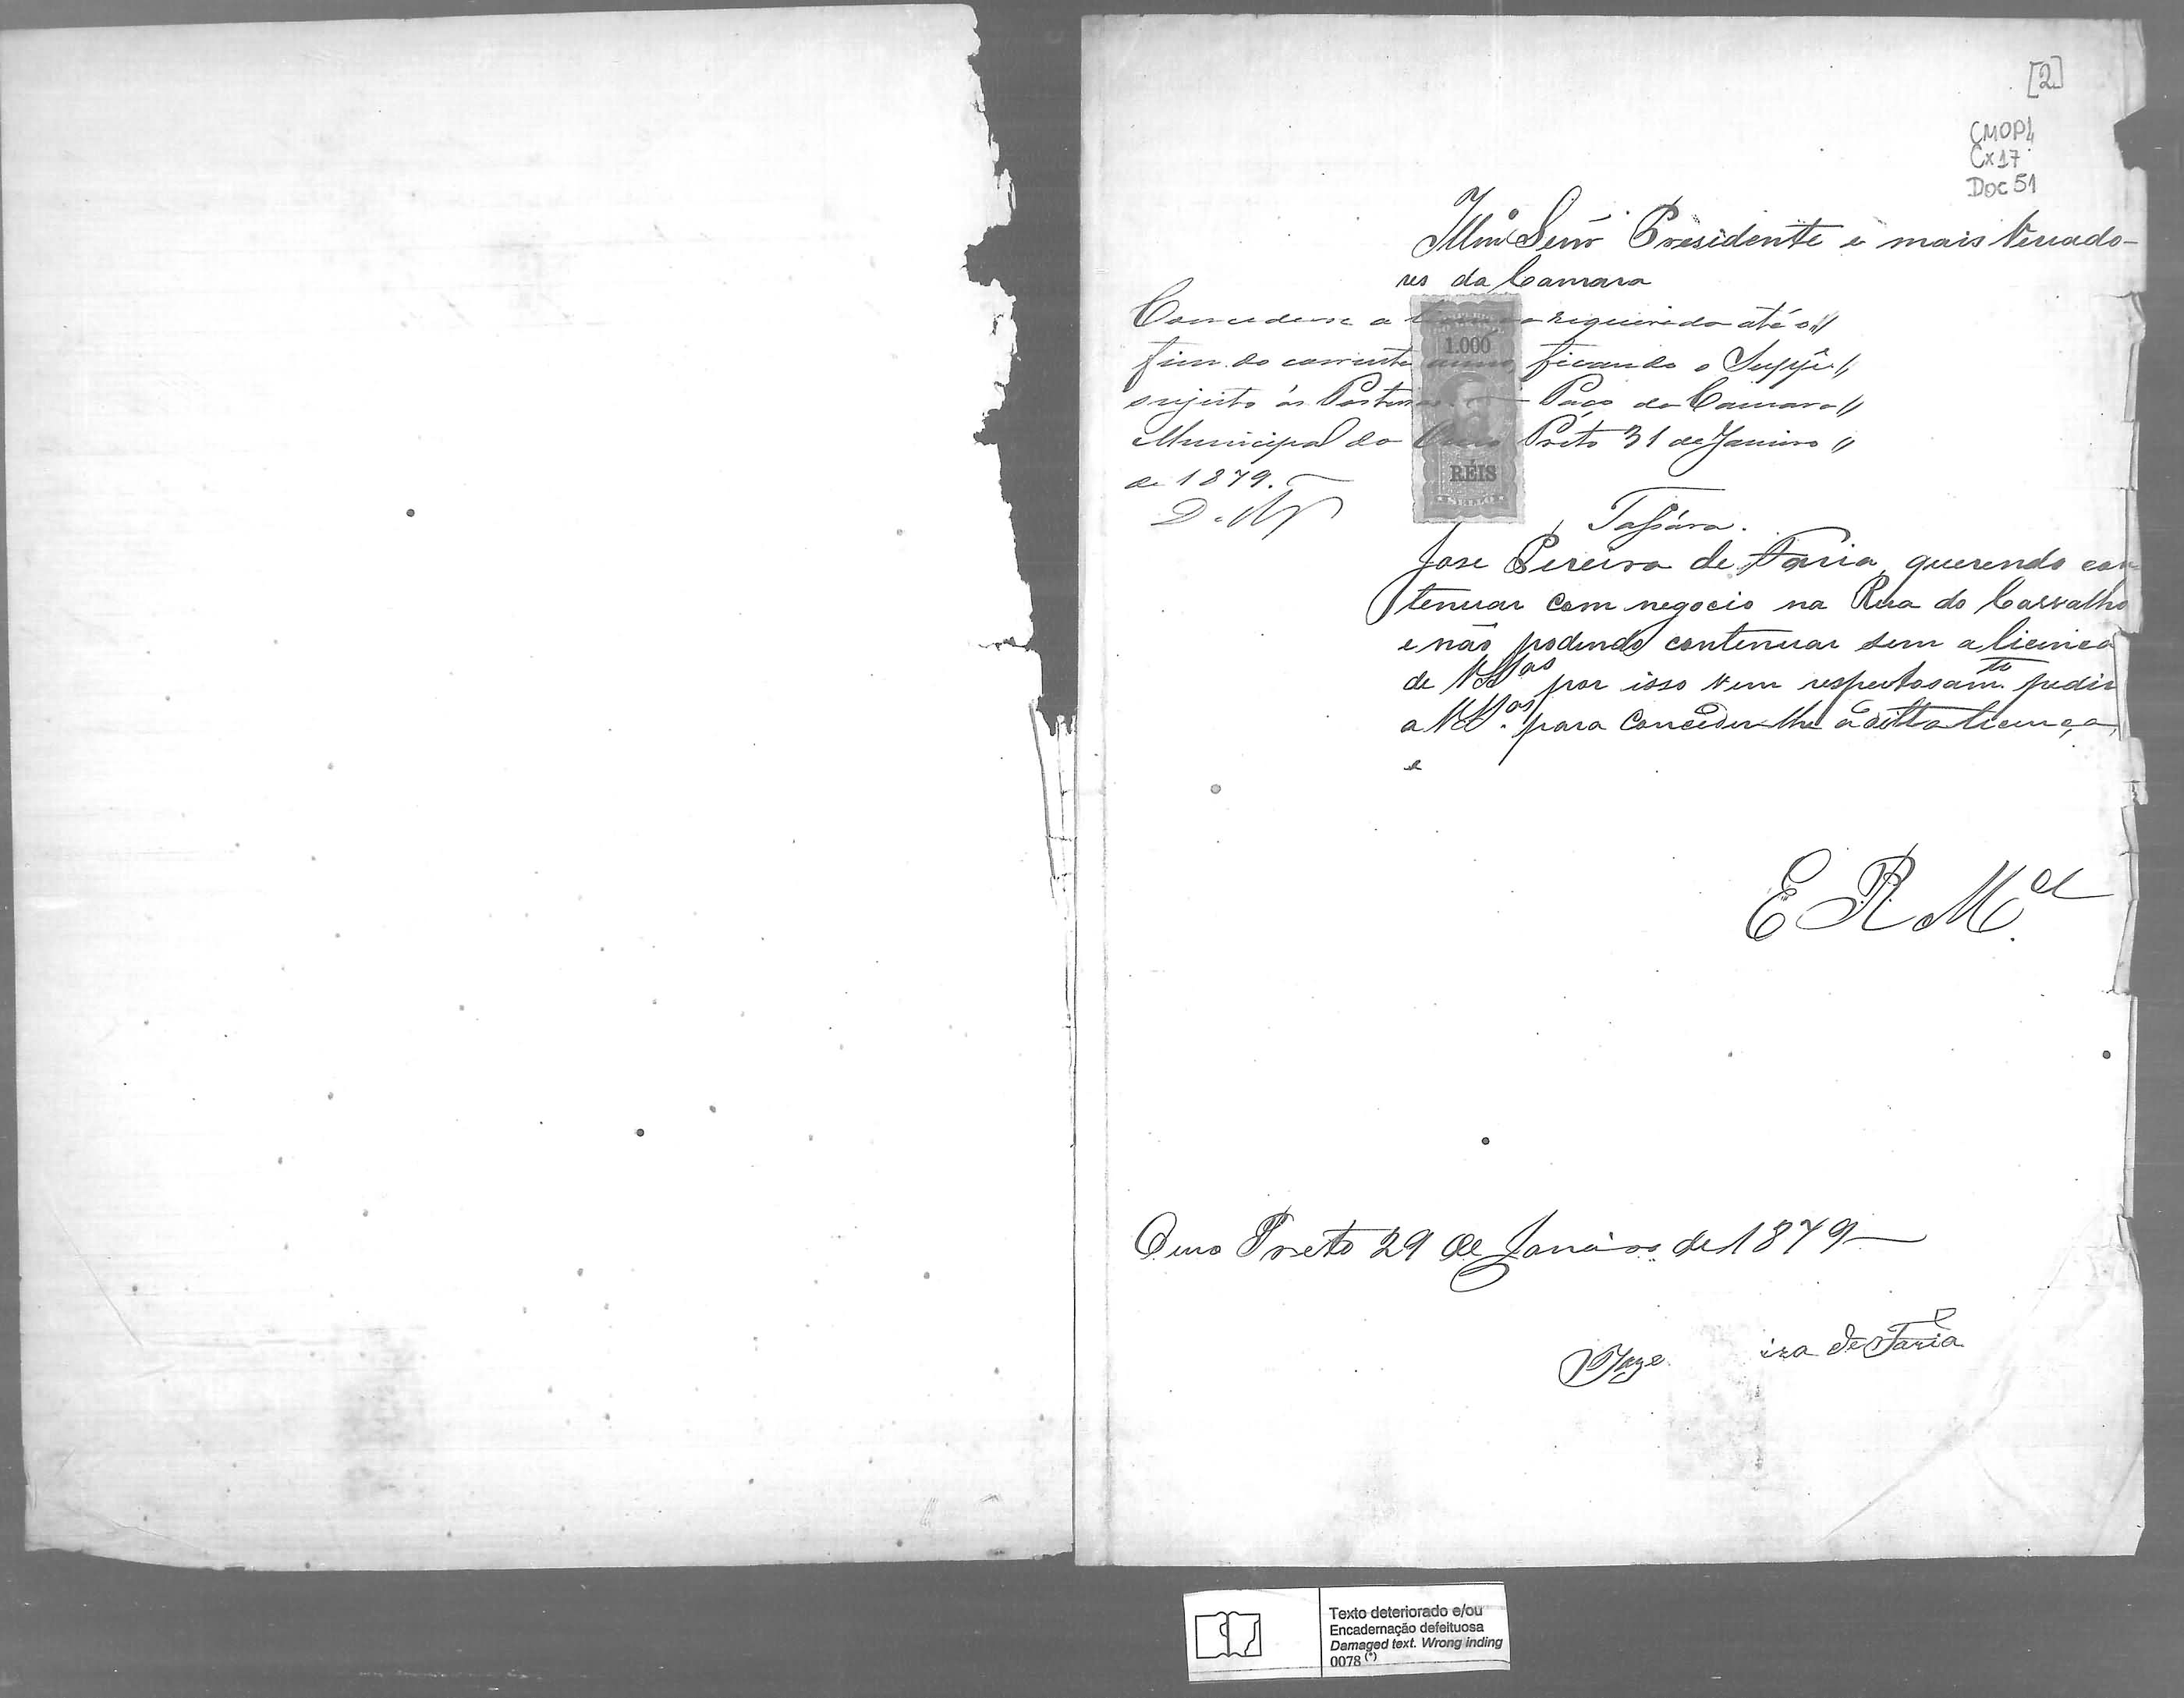 [2]
CMOP4
Cx17
Doc 51
Illmo Senr Presidente e mais Vereado-
res da Camara
Concede-se a requerida até o //
fim do corrente anno, ficando o Suppe //
sujeito ás Posturas. — Paço da Camara //
Municipal do Ouro Preto 31 de Janeiro //
de 1879. —
1.000
RÉIS
SELLO
Tassára.
Jose Pereira de Faria, querendo con
tenuar com negocio na Rua do Carvalho
e não podendo contenuar sem a licenca
de VSas por isso vem respeitosamte pedir
a VSas. para Conceder lhe a ditta licença,
e
E R Mce
Ouro Preto 29 de Janeiro de 1879—
Joze ira de Faria
Texto deteriorado e/ou
Encadernação defeituosa
Damaged text. Wrong inding
0078 (*)